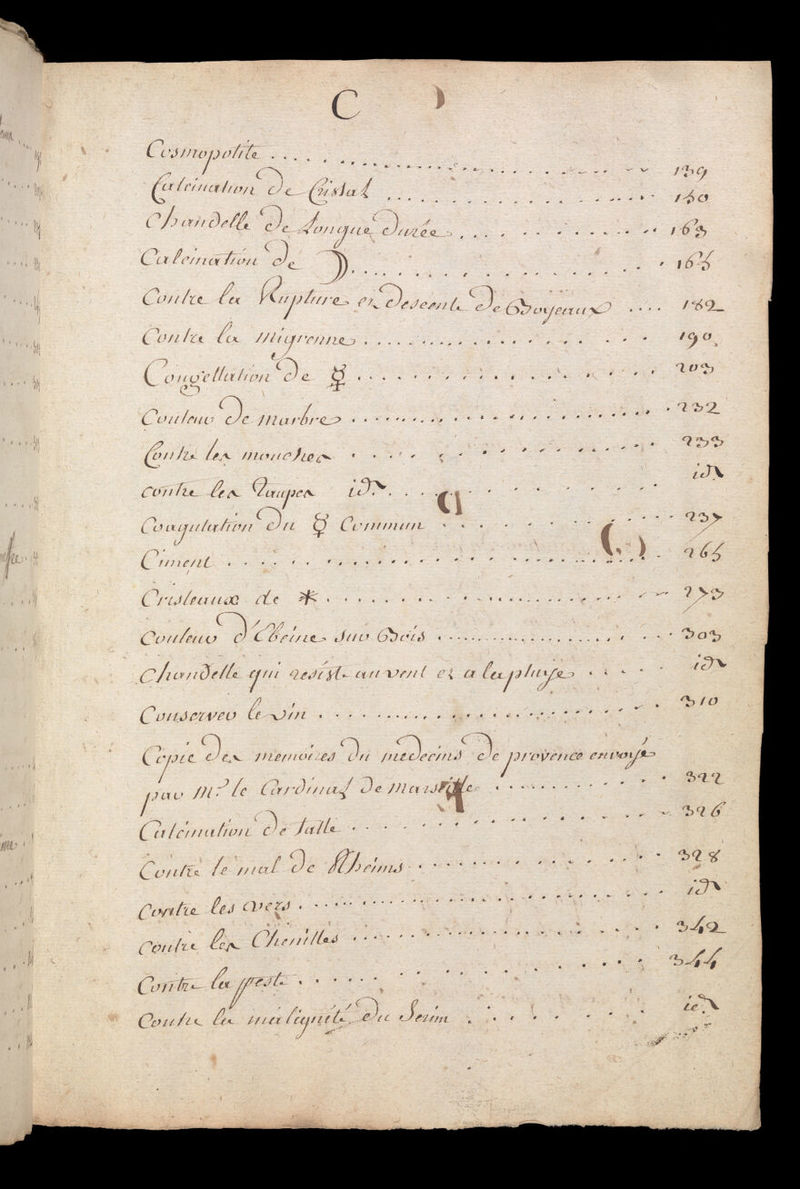 C
Cosmopolite ........ 139
Calcination De Cristal ........ 150
Chandelle De Longue Durée ........ 163
Calcination de ☽ ........ 165
Contre la Rupture et descente De Boyeaux .... 182
Contre la migrenne ........ 190
Congellation De ☿ ........ 203
Couleur De marbre ........ 232
Contre les mouches ........ 233
contre les Taupes id. ........ id.
Coagulation Du ☿ Commun ........ 237
Ciment ........ 265
Cristeaux de * ........ 273
Couleur d'Ebeine sur Bois ........ 303
Chandelle qui resiste au vent et a la pluye ..... id.
Conserver le vin ........ 310
Copie Des memoires Du medecins De provence envoyé
par Mr. le Cardinal De Marseille ........ 322
Calcination De talle ........ 326
Contre le mal de Rheims ........ 328
Contre les vers ........ id.
Contre les Chenilles ........ 342
Contre la peste ........ 344
Contre la malignité Du Serin ........ id.